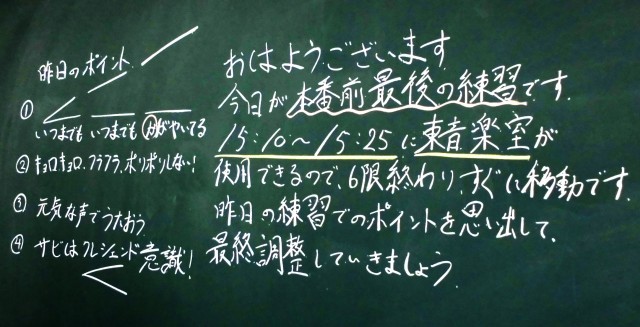 昨日のポイント
①
いつまでも いつまでも かがやいてる
②キョロキョロ、フラフラ、ポリポリしない!
③ 元気な声でうたおう
④ サビはクレシェンド意識!
おはようございます
今日が本番前最後の練習です。
15:10〜15:25に東音楽室が
使用できるので、6限終わり、すぐに移動です。
昨日の練習でのポイントを思い出して、
最終調整していきましょう。